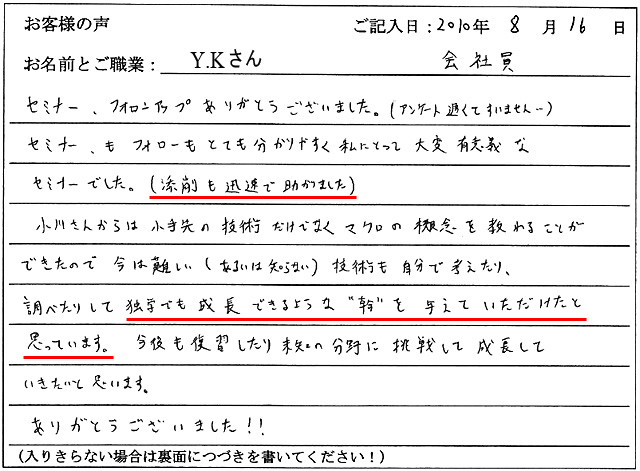 お客様の声 ご記入日：2010年 8 月 16 日
お名前とご職業： Y.Kさん 会社員
セミナー、フォローアップありがとうございました。（アンケート遅くてすいません…）
セミナー、もフォローもとても分かりやすく私にとって大変有意義な
セミナーでした。（添削も迅速で助かりました）
小川さんからは小手先の技術だけでなくマクロの概念を教わることが
できたので今は難しい（あるいは知らない）技術も自分で考えたり、
調べたりして独学でも成長できるような“幹”を与えていただけたと
思っています。今後も復習したり未知の分野に挑戦して成長して
いきたいと思います。
ありがとうございました！！
（入りきらない場合は裏面につづきを書いてください！）